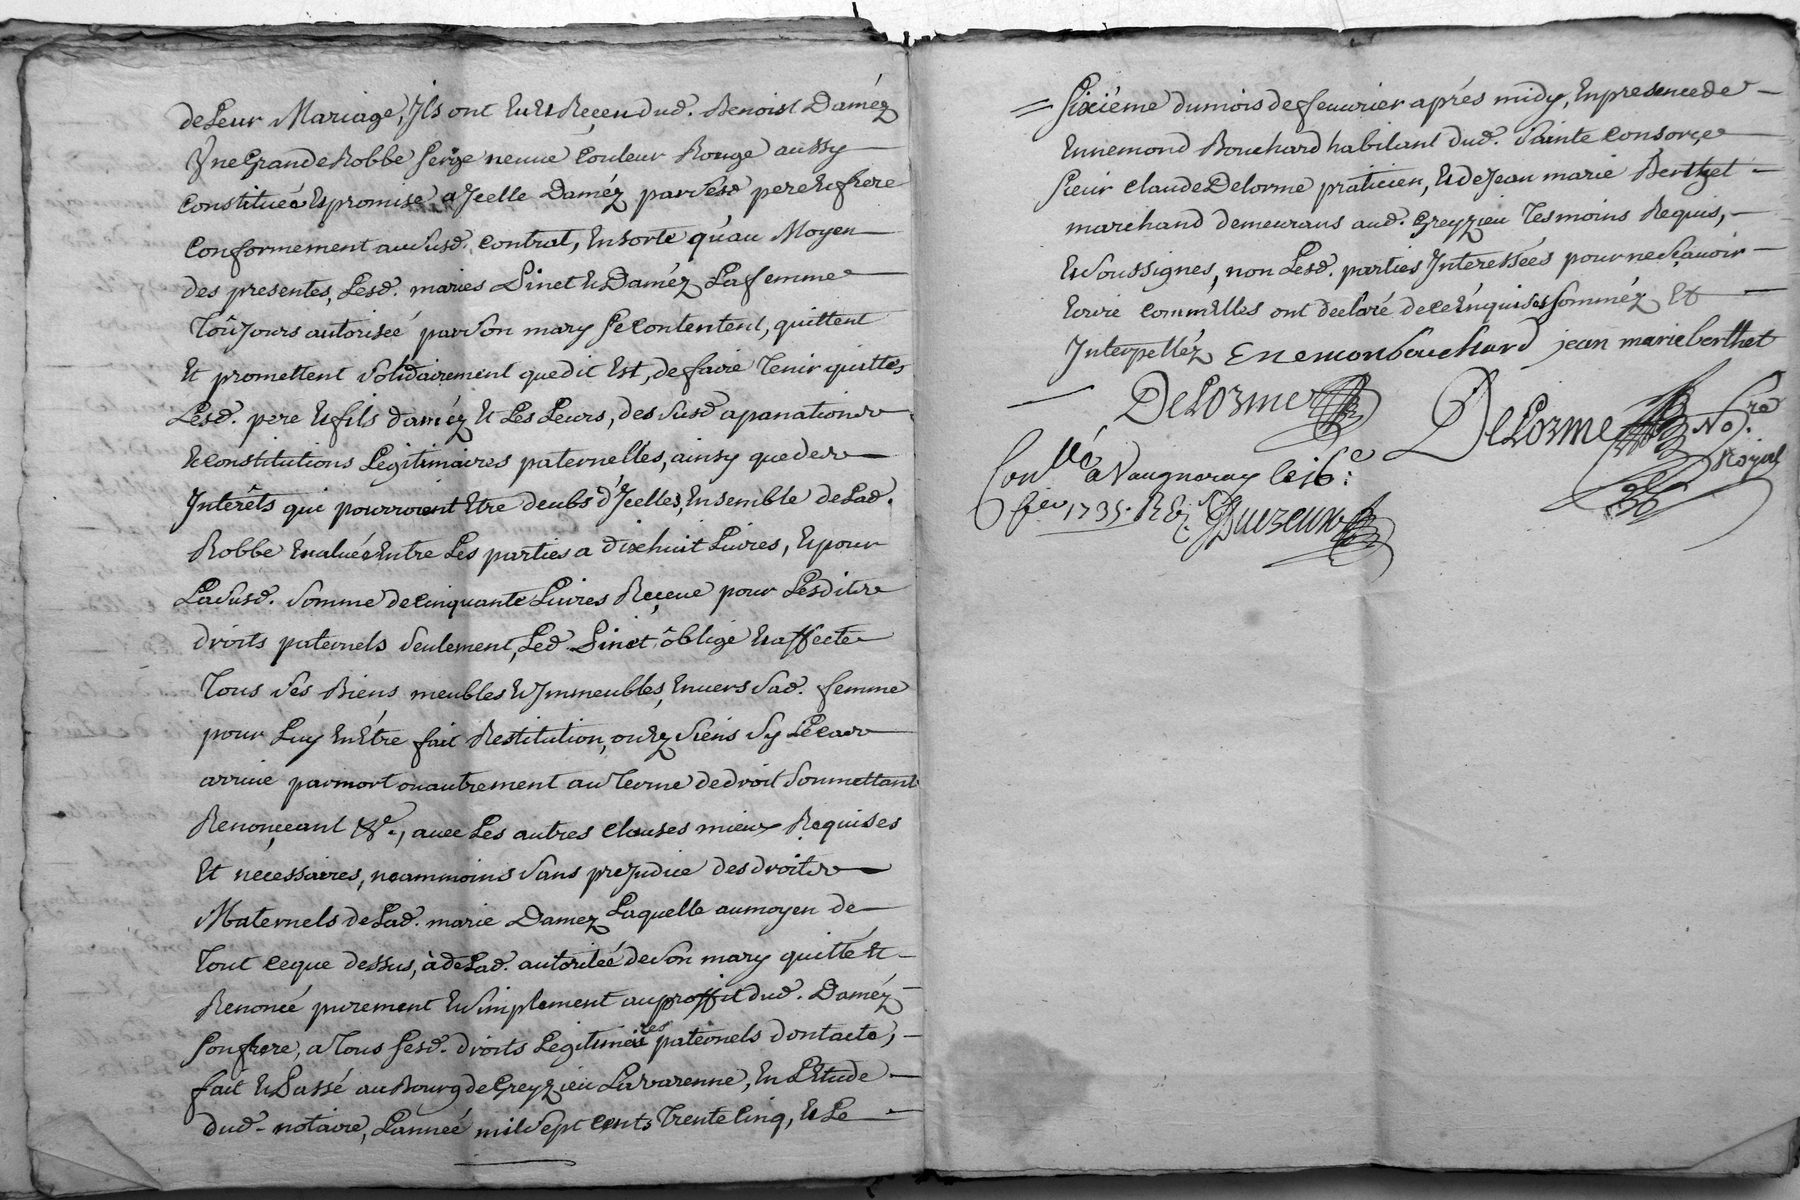 de Leur Mariage, Ils ont Eu et Reçeu dud. Benoist Daméz
Une Grande Robbe Serge neuue Couleur Rouge aussy
Constituéé et promise a Jcelle Daméz par Sesd pere et frere
Conformement au susd. Contrat, En sorte qu'au Moyen
des presentes, Lesd. mariés Linet et Daméz La femme
Toûjours autoriséé par Son mary Se Contentent, quittent
Et promettent Solidairement que dit Est, de faire Tenir quittes
Lesd. pere et fils daméz et Les Leurs, des susd apanations
et Constitutions Legitimaires paternelles, ainsy que des
Interêts qui pourroient Etre deubs d'Jcelles, Ensemble de Lad.
Robbe Eualuéé Entre Les parties a dixhuit Liures, et pour
La Susd. Somme de Cinquante Liures Reçeue pour Lesdits
droits paternels Seulement, Led. Linet ôblige et affecte
Tous Ses Biens meubles et Jmmeubles, Enuers Sad. femme
pour Luy En Etre fait Restitution, ou Ez Siens Sy Le Cas
arriue par mort ou autrement au Terme de droit Soumettant
Renonçeant &c., auec Les autres Clauses mieux Requises
Et neçessaires, neammoins Sans prejudice des droits
Maternels de Lad. marie Damez Laquelle au moyen de
Tout Ce que dessus, à de Lad. autoritéé de Son mary quitté et
Renoncé purement et Simplement au proffit dud. Daméz
Son frere, a Tous Sesd. droits Legitimaires paternels dont acte,
fait et Passé au Bourg de Greyzieu La Varenne, En L'Etude
dud. notaire, L'annéé mil Sept Cents Trente Cinq, et Le
Sixiéme du mois de feuurier aprés midy, En presence de
Ennemond Bouchard habitant dud. Sainte Consorçe
Sieur Claude Delorme praticien, et de Jean marie Berthet
marchand demeurans aud. Greyzieu Tesmoins Requis,
et Soussignes, non Lesd. parties Jnteressées pour ne Sçauoir
Ecrire Comm'Elles ont declaré de Ce Enquises Somméz Et
Jnterpelléz Enemon bouchard jean marie berthet
Delorme Delorme No.re
Royal
Con.llé a Vaugneray le 16.e
feu 1735.